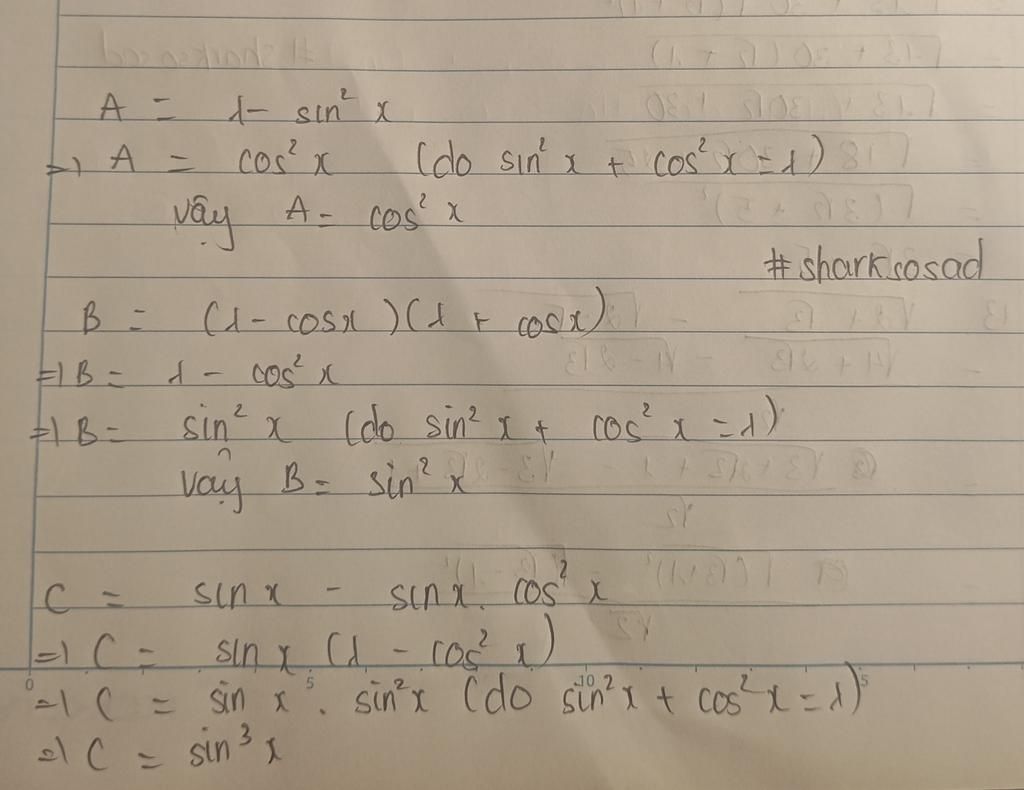 A = 1 - sin² x
=> A = cos² x (do sin² x + cos² x = 1)
vậy A = cos² x
#sharksosad
B = (1 - cosx)(1 + cosx)
=> B = 1 - cos² x
=> B = sin² x (do sin² x + cos² x = 1)
vậy B = sin² x
C = sin x - sin x. cos² x
=> C = sin x (1 - cos² x)
=> C = sin x . sin²x (do sin²x + cos²x = 1)
=> C = sin³ x